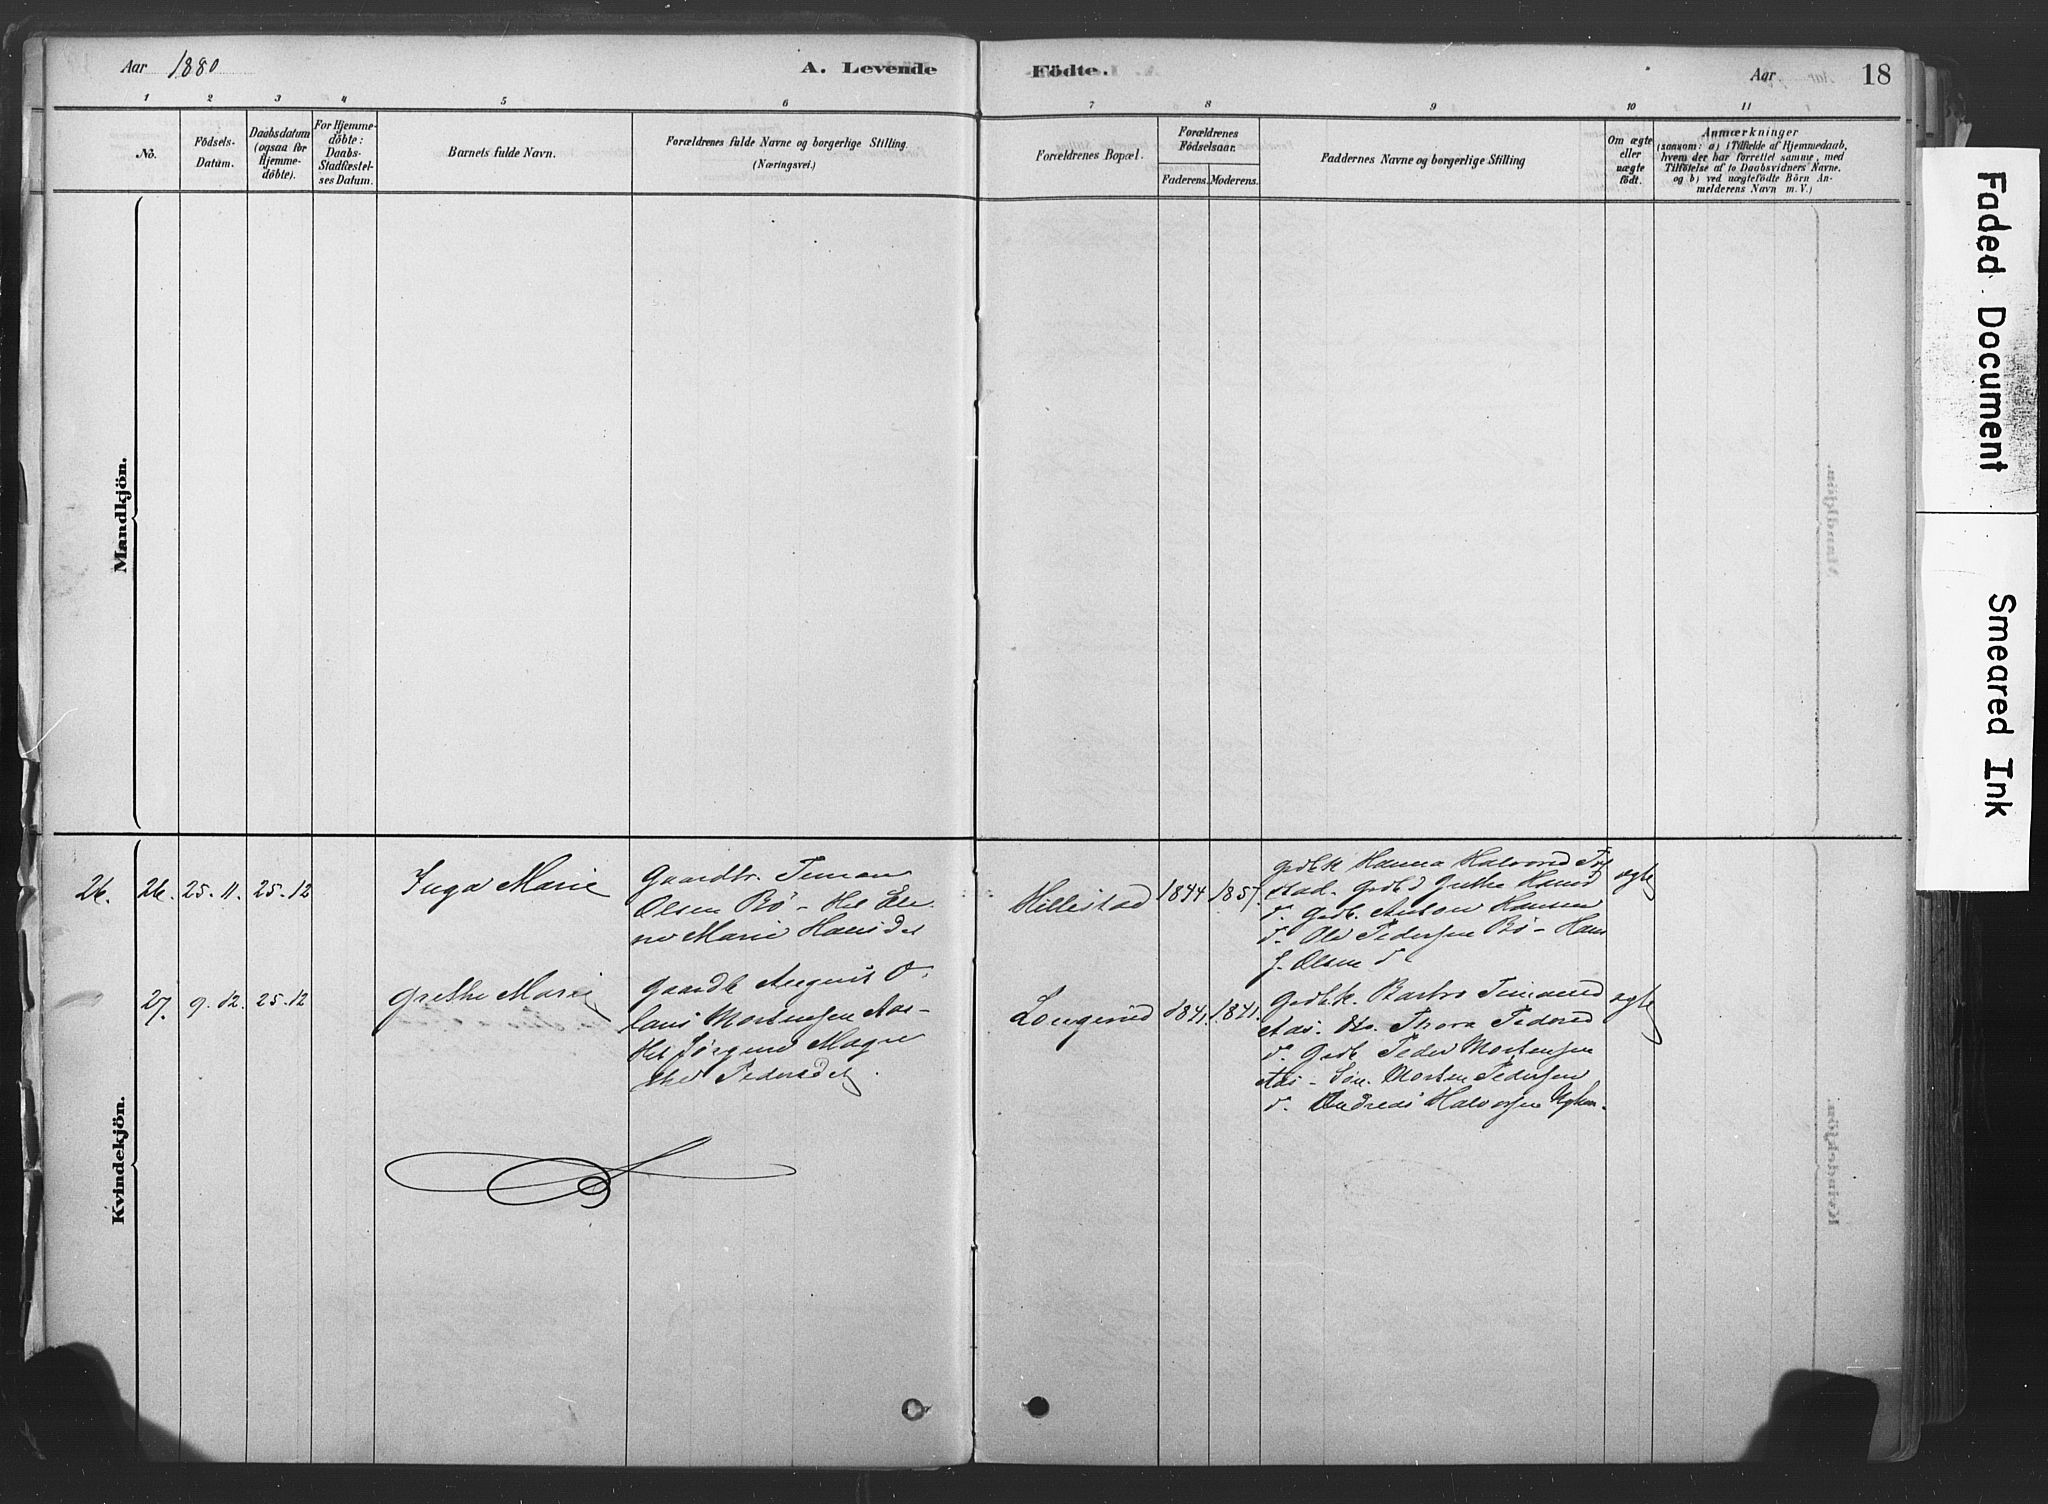 Aar 1880
A. Levende Födte.
Aar
18
1 2 3 4 5 6 7 8 9 10 11
No.
Födsels-
Datum.
Daabsdatum
(ogsaa for
Hjemme-
döbte).
For Hjemme-
döbte:
Daabs-
Stadfæstel-
ses Datum.
Barnets fulde Navn.
Forældrenes fulde Navne og borgerlige Stilling.
(Næringsvei.)
Forældrenes Bopæl.
Forældrenes
Födselsaar.
Faderens. Moderens.
Faddernes Navne og borgerlige Stilling
Om ægte
eller
uægte
födt.
Anmærkninger
(saasom: a) i Tilfælde af Hjemmedaab,
hvem der har forrettet samme, med
Tilföielse af to Daabsvidners Navne.
og b) ved uægtefödte Börn An-
melderens Navn m. V.)
Mandkjön.
Kvindekjön.
26. 26. 25.11. 25.12
Inga Marie
Gaardbr.
Olsen Bö
Marie Hansdet
Hillestad
1844 1857.
Gdbk Hanna Halvorsd
stad. Gdbd Grethe Hansd
d. Gdb. Anton Hansen
d. Ole Pedersen Bö - Hans
J. Olsen d
ægte
27. 9.12. 25.12
Grethe Marie
Gaardb August O
laus Mortensen Aas-
Jörgine Magre
the Pedersdet.
Langerud
1841. 1841.
Gdbk.
Aas. Do. Thora Pedersd
d. Gdb Peder Mortensen
Aas - Sön. Morten Pedersen
d. Andreas Halvorsen
ægte
Faded Document
Smeared Ink